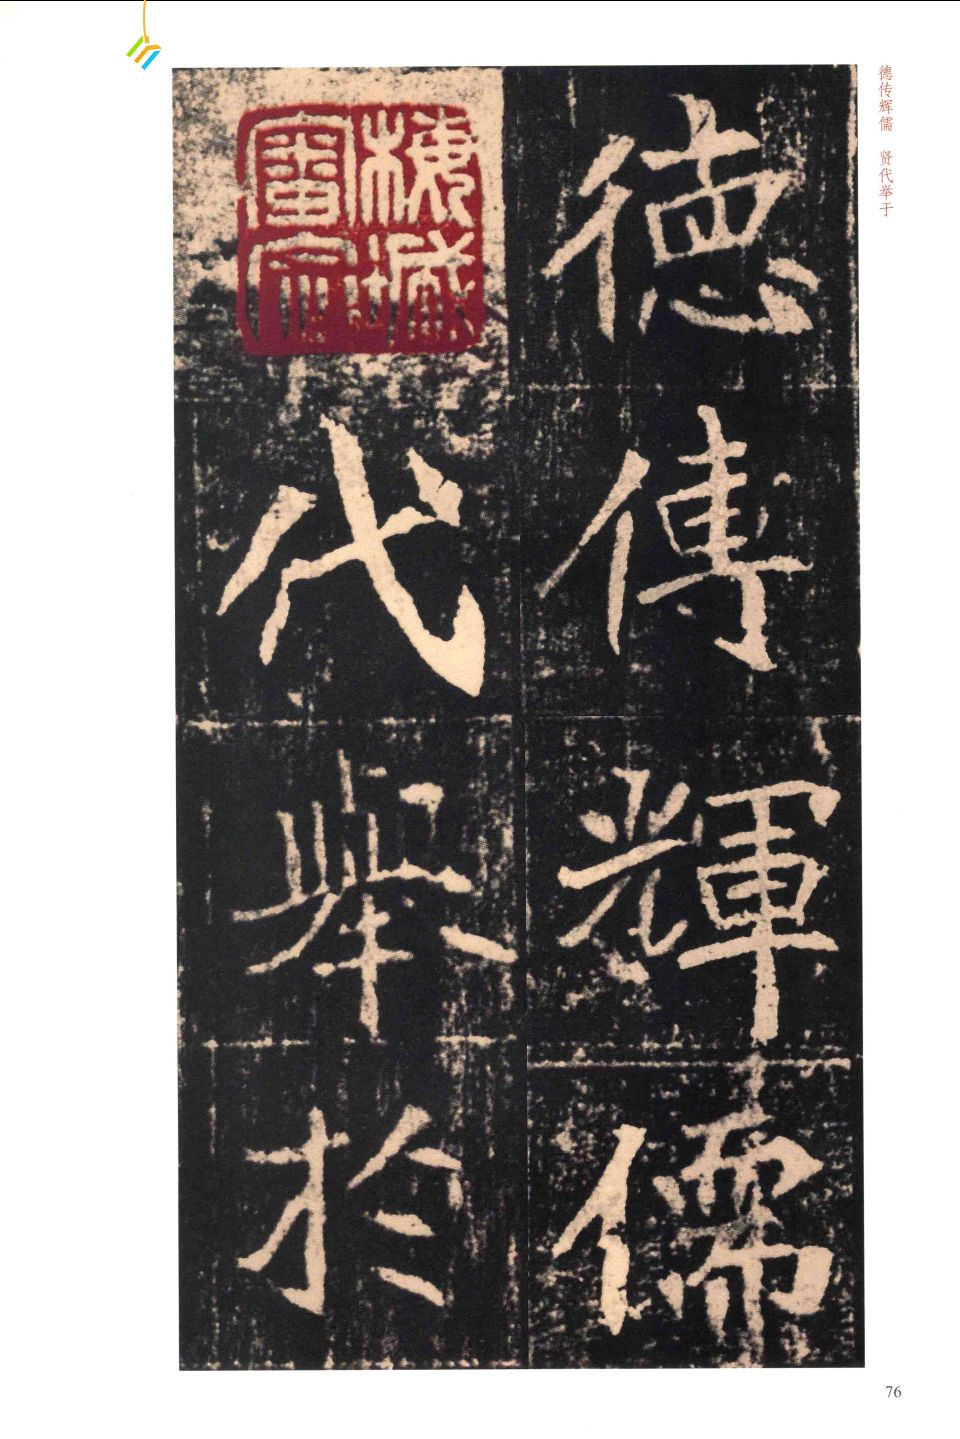 德传辉儒 贤代举于
德傳輝儒
代舉於
76